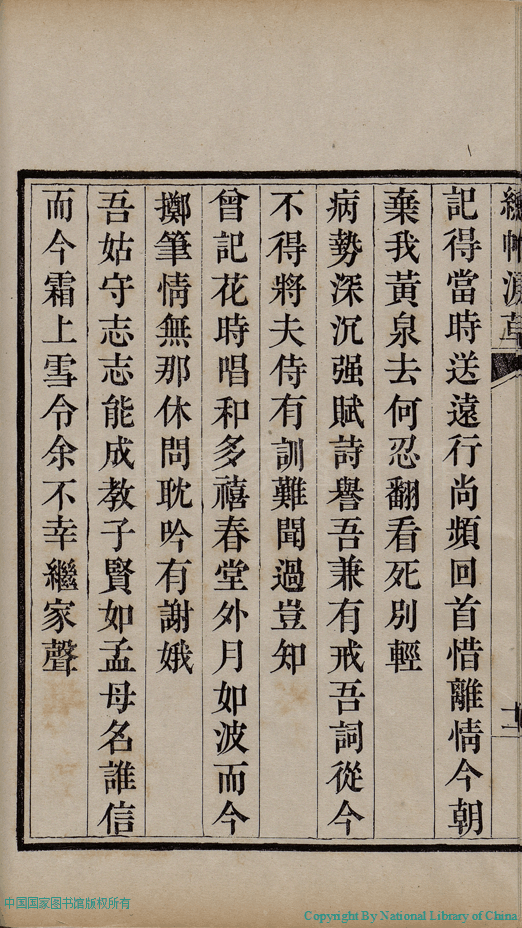 記得當時送遠行尚頻回首惜離情今朝
棄我黃泉去何忍翻看死别輕
病勢深沉强賦詩譽吾兼有戒吾詞從今
不得將夫侍有訓難聞過豈知
曾記花時唱和多禧春堂外月如波而今
擲筆情無那休問耽吟有謝娥
吾姑守志志能成教子賢如孟母名誰信
而今霜上雪令余不幸繼家聲
中国国家图书馆版权所有
Copyright By National Library of China.